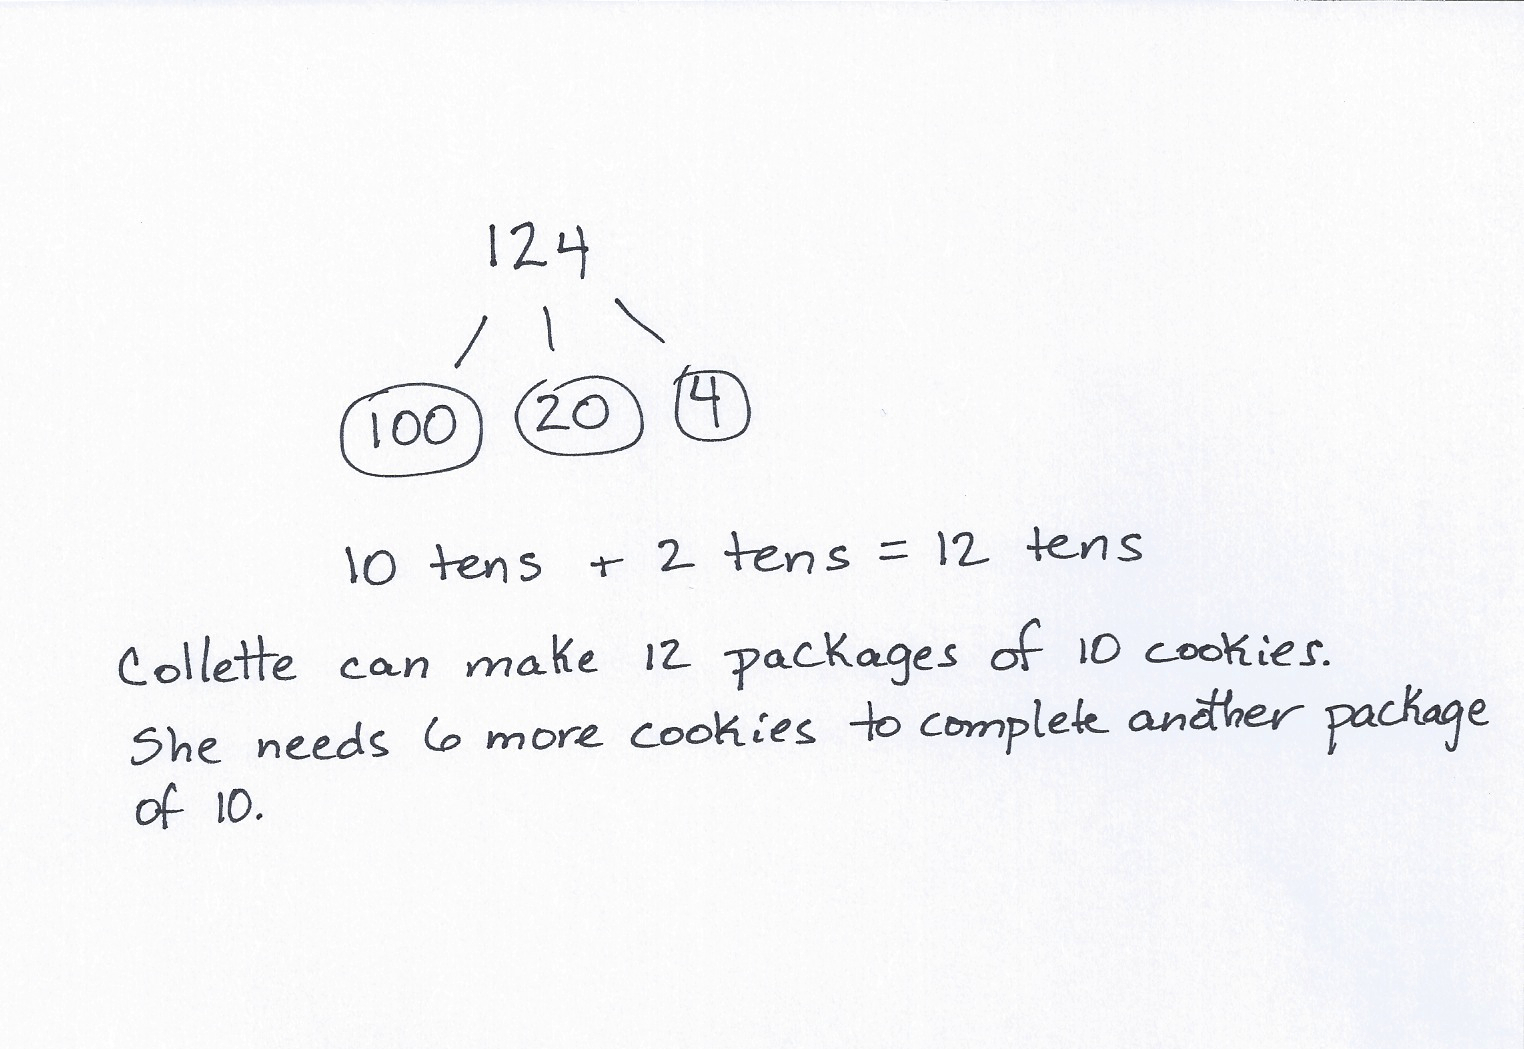 124
100 20 4
10 tens + 2 tens = 12 tens
Collette can make 12 packages of 10 cookies.
She needs 6 more cookies to complete another package
of 10.